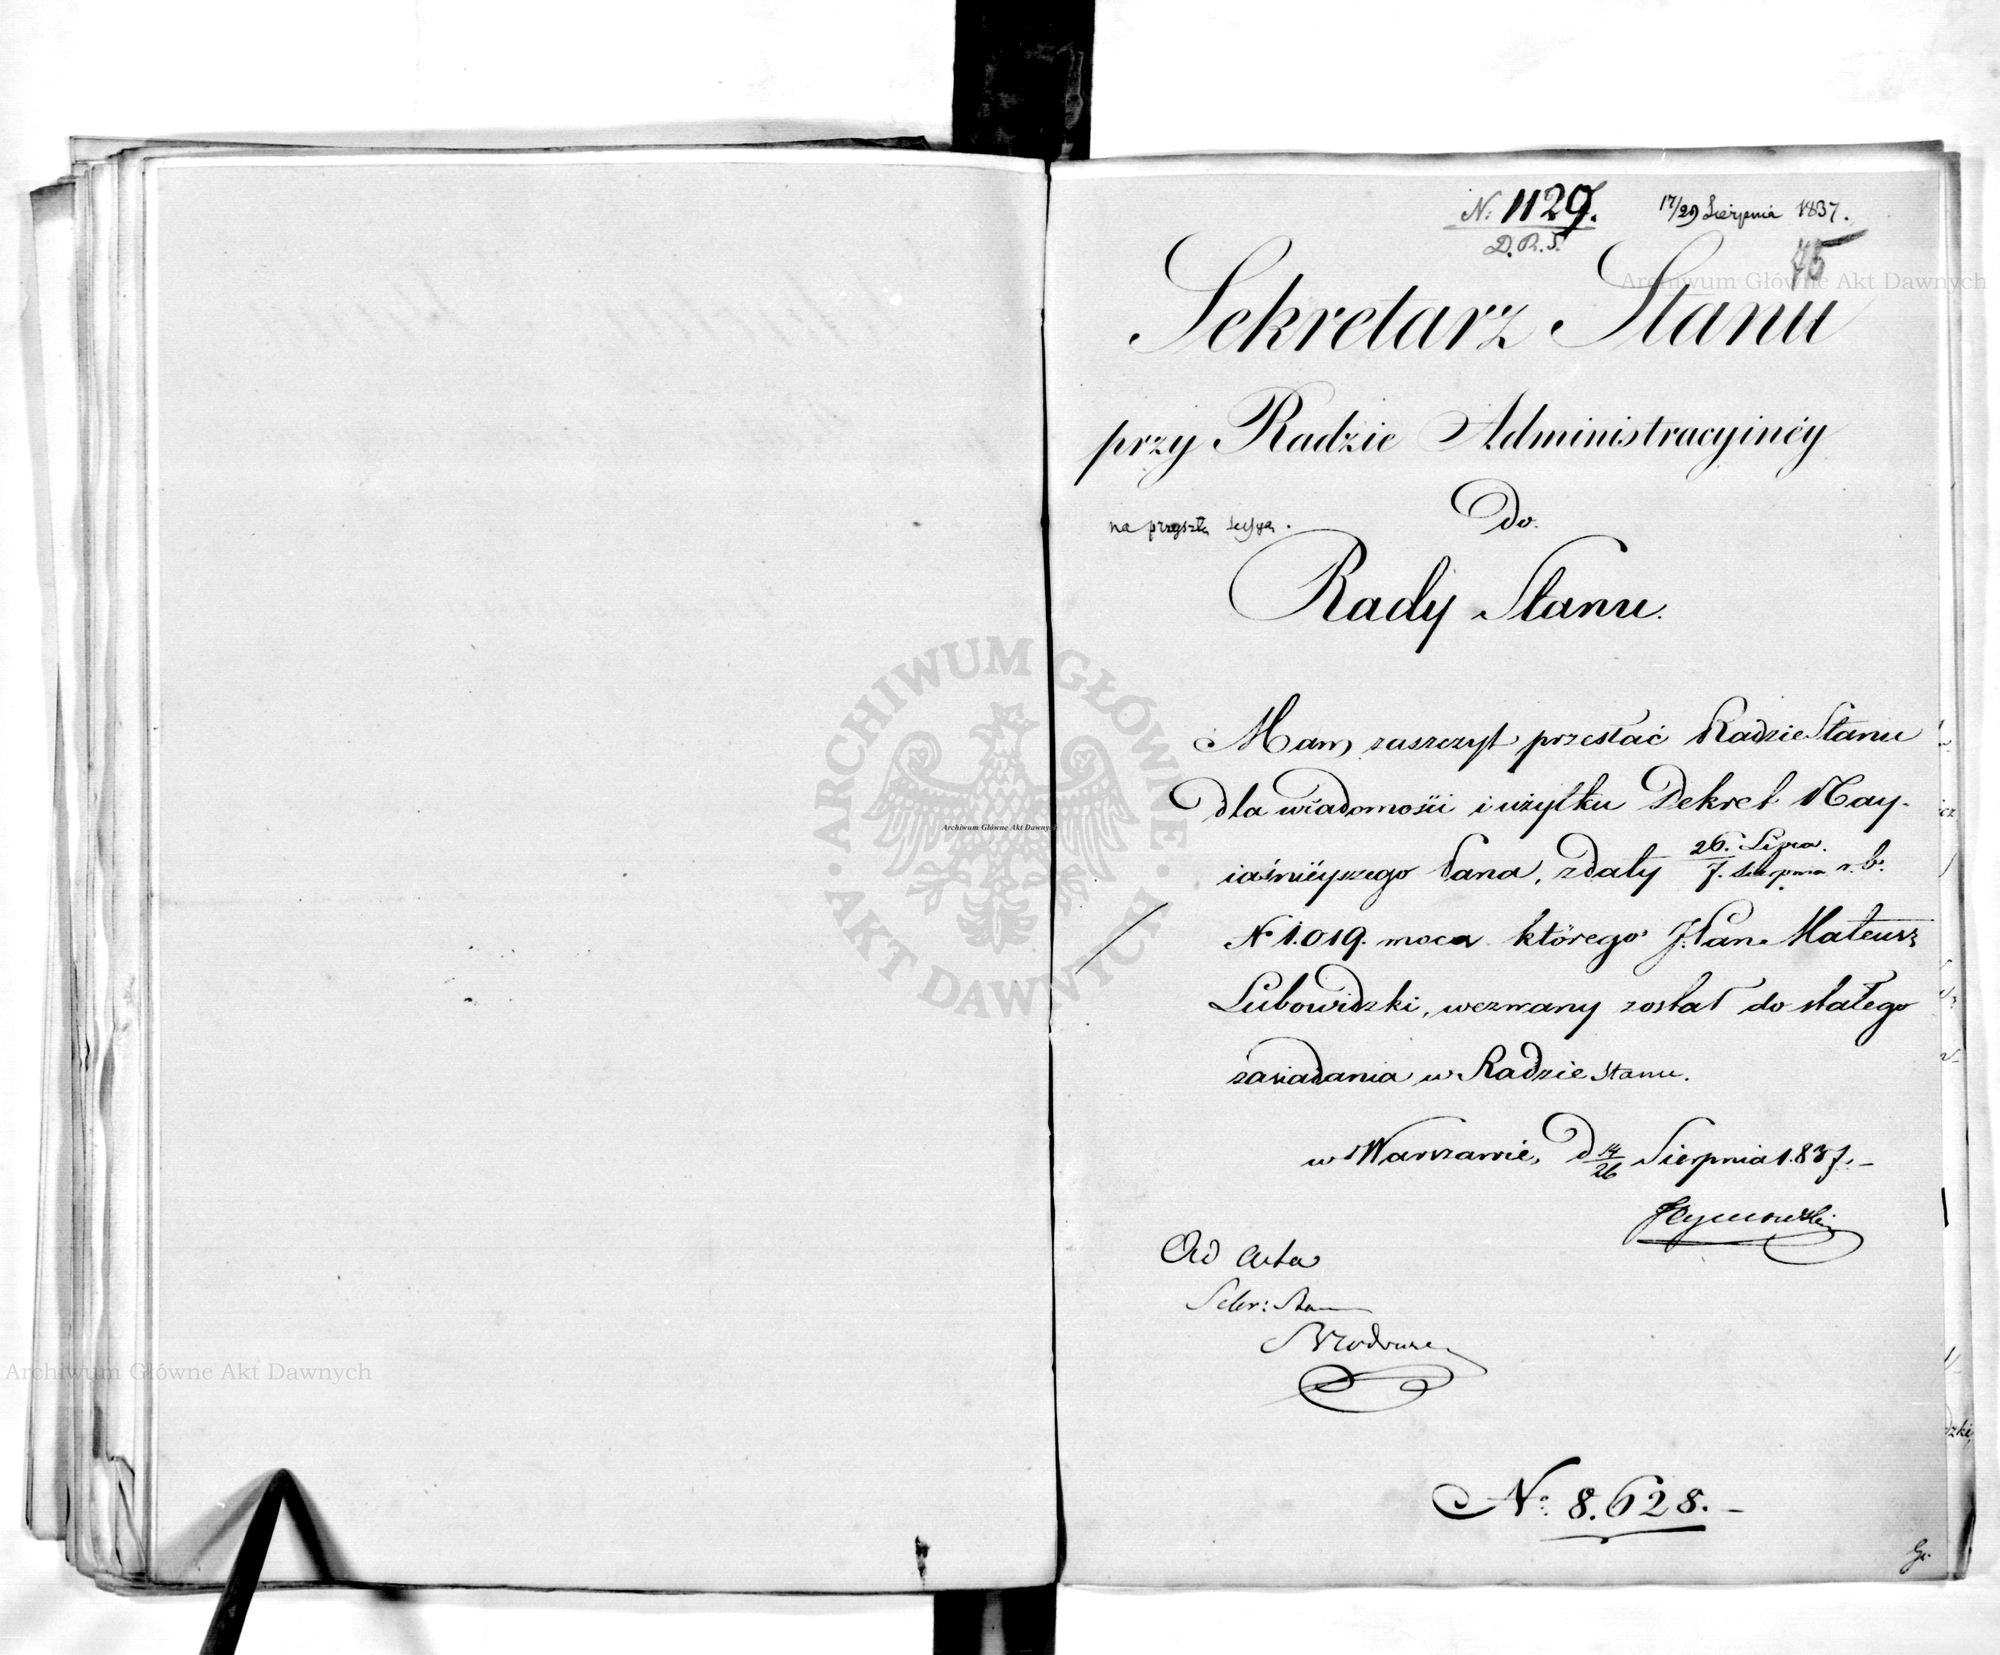 N: 1129. 17/29 Sierpnia 1837.
D.R.S.
75
Sekretarz Stanu
przy Radzie Administracyinéy
Do
na przyszłą Sessyą.
Rady Stanu.
Mam zaszczyt przesłać Radzie Stanu
dla wiadomości i użytku Dekret Nay-
iaśnieyszego Pana, z daty 26. Lipca / 7. Sierpnia r. b.
N 1.019. mocą którego J. Pan Mateusz
Lubowidzki, wezwany został do stałego
zasiadania w Radzie Stanu.
w Warszawie, D 14/26 Sierpnia 1.837.–
Tymowski
Ad Acta
Sekr: Stanu
N° 8.628.–
Archiwum Główne Akt Dawnych
Archiwum Główne Akt Dawnych
Archiwum Główne Akt Dawnych
ARCHIWUM GŁÓWNE AKT DAWNYCH